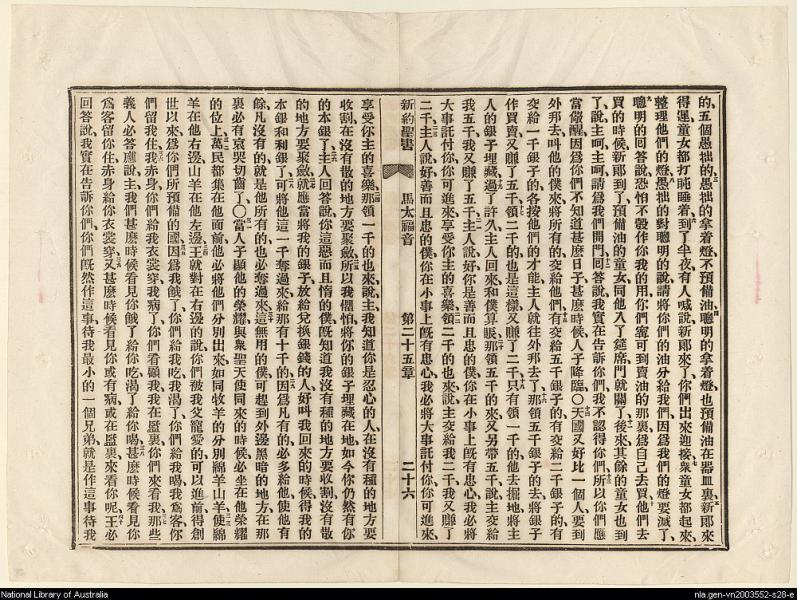 的、五個愚拙的、愚拙的拿着燈、不預備油、聰明的拿着燈、也預備油在器皿裏、新郎來
得遲、童女都打盹睡着、到了半夜、有人喊說、新郎來了、你們出來迎接、衆童女都起來、
整理他們的燈、愚拙的對聰明的說、請將你們的油分給我們、因爲我們的燈要滅了、
聰明的回答說、恐怕不彀作你我的用、你們寧可到賣油的那裏、爲自己去買、他們去
買的時候、新郎到了、預備油的童女同他入了筵席、門就關了、後來其餘的童女也到
了、說、主呵主呵、請爲我們開門、回答說、我實在告訴你們、我不認得你們、所以你們應
當儆醒、因爲你們不知道甚麽日子、甚麽時候、人子降臨、〇天國又好比一個人要到
外邦去、叫他的僕來、將所有的交給他們、有交給五千銀子的、有交給二千銀子的、有
交給一千銀子的、各按他們的才能、主人就往外邦去了、那領五千銀子的去將銀子
作買賣、又賺了五千、領二千的也是這樣、又賺了二千、只有領一千的他去掘地、將主
人的銀子埋藏、過了許久、主人回來、和僕算賬、那領五千的來、又另帶五千、說、主交給
我五千、我又賺了五千、主人說、好、你是善而且忠的僕、你在小事上旣有忠心、我必將
大事託付你、你可進來享受你主的喜樂、領二千的也來說、主交給我二千、我又賺了
二千、主人說、好、善而且忠的僕、你在小事上旣有忠心、我必將大事託付你、你可進來
新約聖書 馬太福音 第二十五章 二十六
享受你主的喜樂、那領一千的也來說、主、我知道你是忍心的人、在沒有種的地方要
收割、在沒有散的地方要聚斂、所以我懼怕、將你的銀子埋藏在地、如今你仍然有你
的本銀了、主人回答說、你這惡而且惰的僕、旣知道我沒有種的地方要收割、沒有散
的地方要聚斂、就應當將我的銀子放給兌換銀錢的人、好叫我回來的時候、得我的
本銀和利銀了、可將他這一千奪過來、給那有十千的、因爲凡有的、必多給使他有
餘、凡沒有的、就是他所有的也必奪過來、這無用的僕、可趕到外邊黑暗的地方、在那
裏必有哀哭切齒了、〇當人子顯他的榮耀、與衆聖天使同來的時候、必坐在他榮耀
的位上、萬民都集在他面前、他必將他們分別出來、如同牧羊的分別綿羊山羊、使綿
羊在他右邊、山羊在他左邊、王就對在右邊的說、你們被我父寵愛的、可以進前得創
世以來爲你們所預備的國、因爲我餓了、你們給我吃、我渴了、你們給我喝、我爲客、你
們留我住、我赤身、你們給我衣裳穿、我病了、你們看顧我、我在監裏、你們來看我、那些
義人必答應說、主、我們甚麽時候看見你餓了給你吃、渴了給你喝、甚麽時候看見你
爲客留你住、赤身給你衣裳穿、又甚麽時候看見你或有病、或在監裏來看你呢、王必
回答說、我實在告訴你們、你們旣然作這事待我最小的一個兄弟、就是作這事待我
National Library of Australia
nla.gen-vn2003552-s28-e